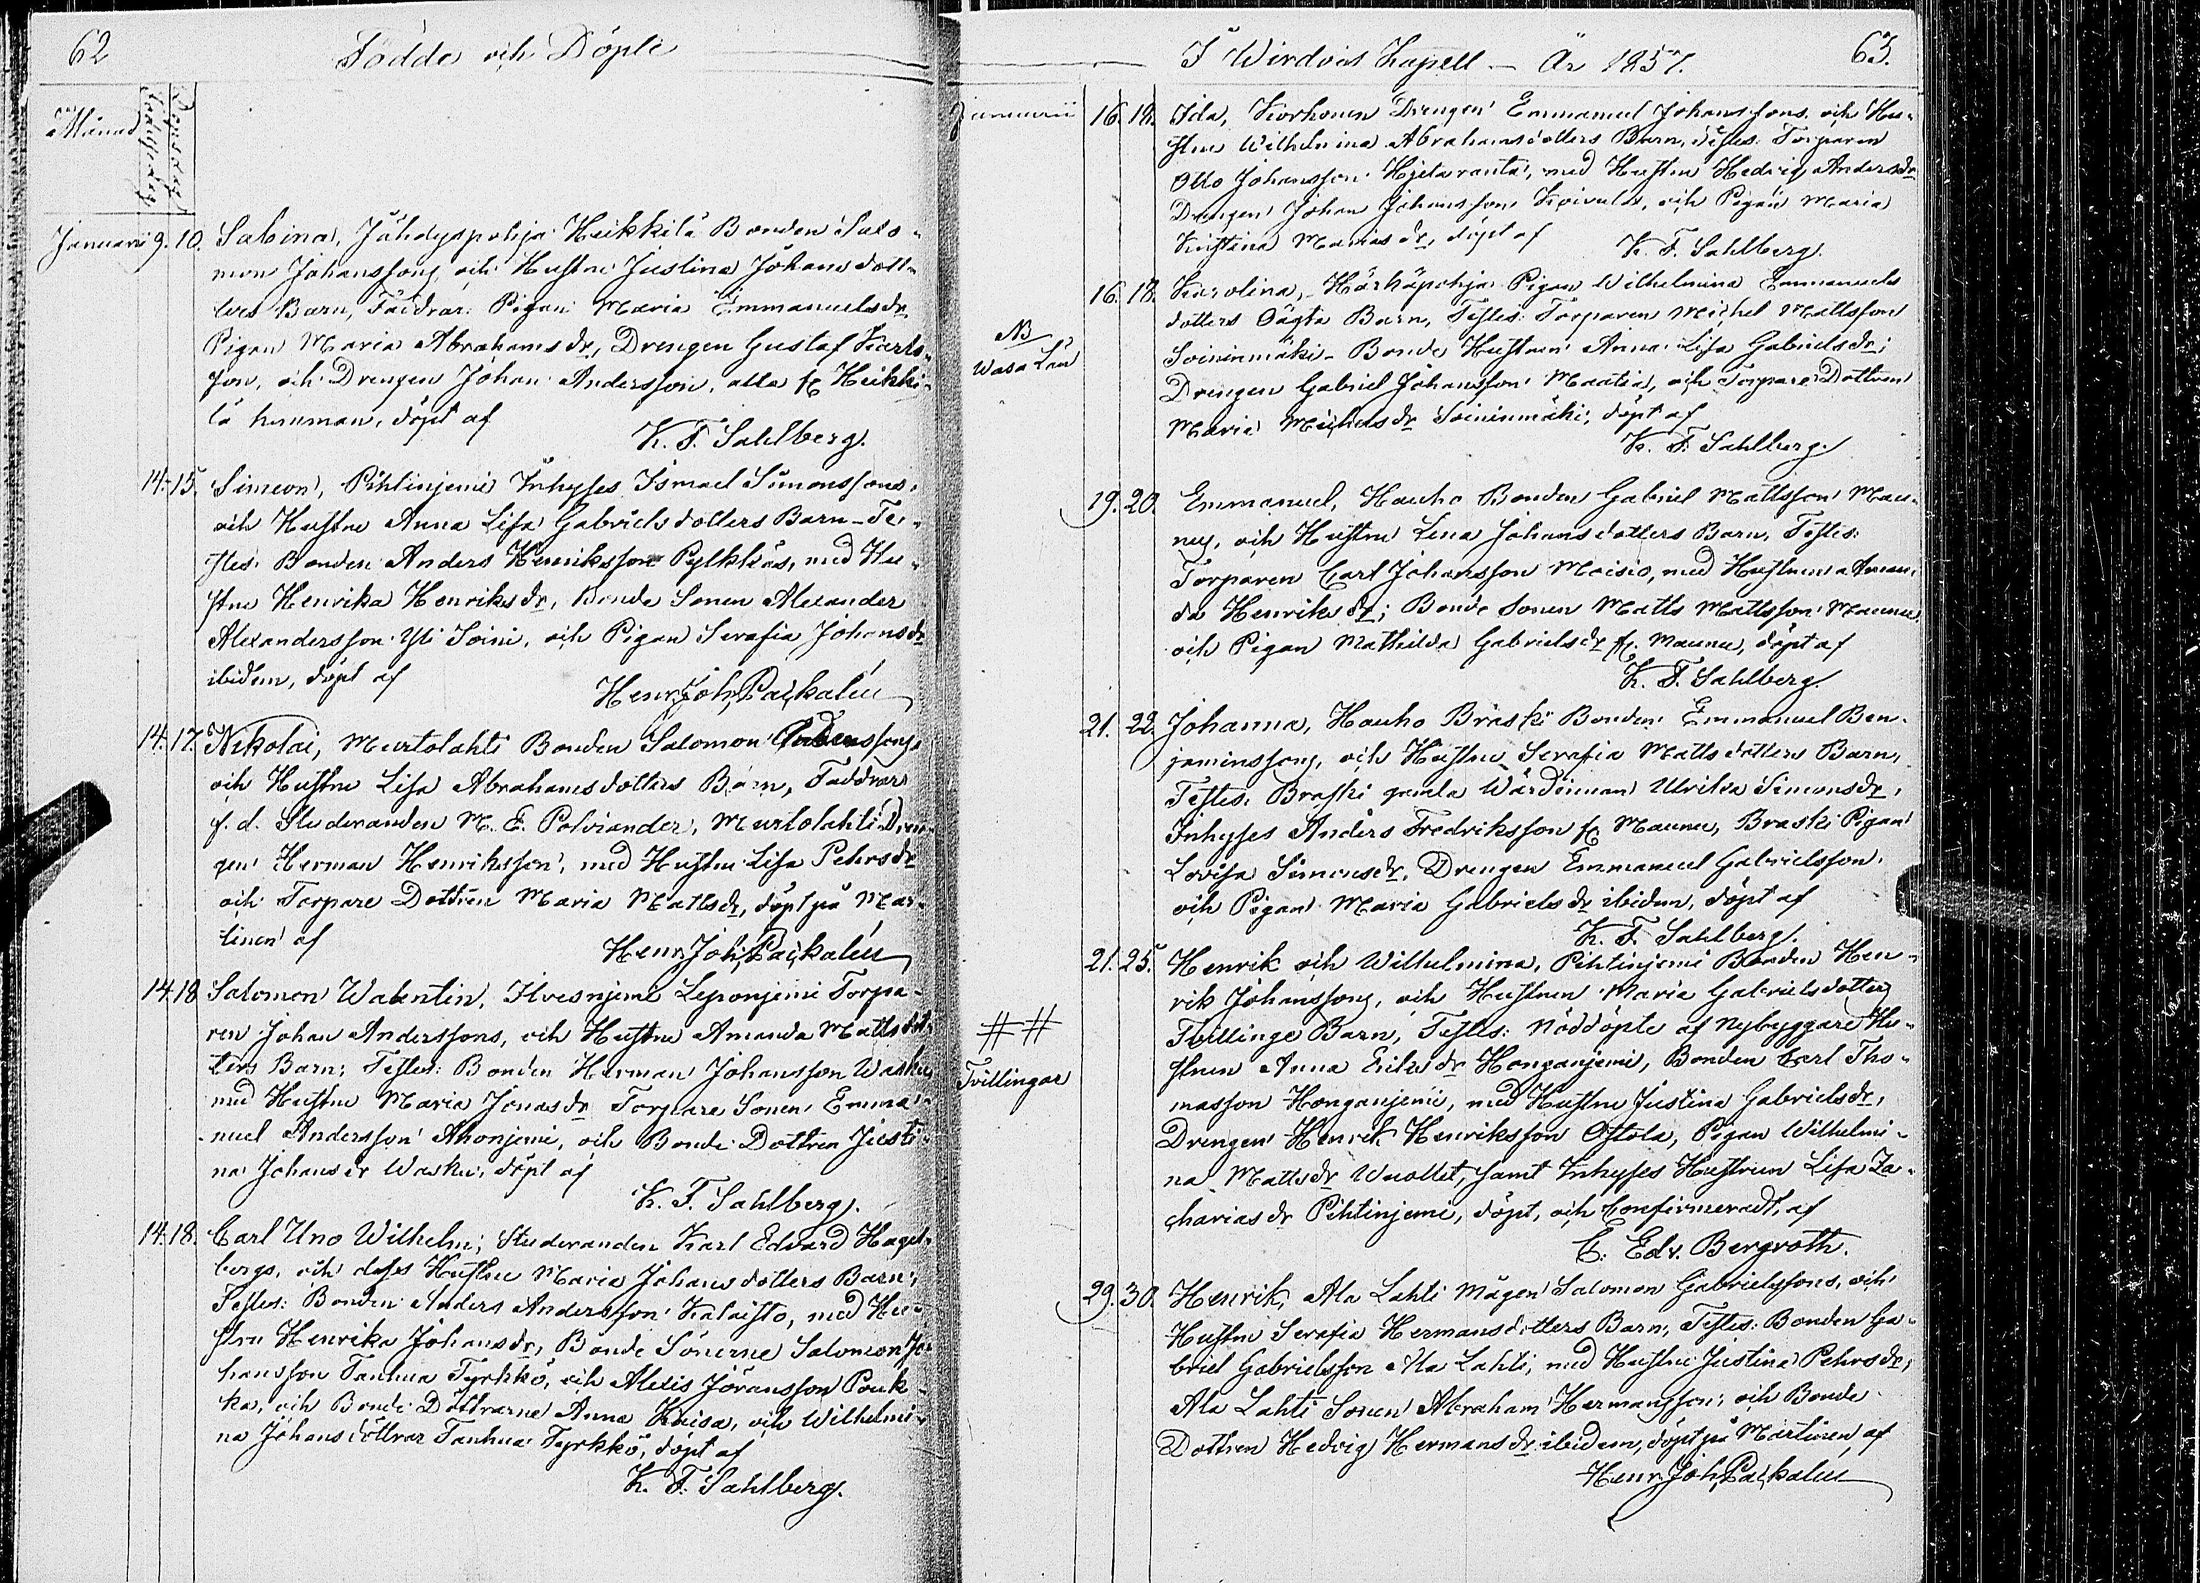 62
Födde och Döpte
Månad
Födelsedag
Döpelsedag
Januari 9. 10. Sabina, Jähdyspohja Heikkilä Bonden Salo-
mon Johanssons och Hustru Justina Johansdott-
ters Barn, Faddrar: Pigan Maria Emmanuelsdr,
Pigan Maria Abrahamsdr, Drengen Gustaf Karls-
son, och Drengen Johan Andersson, alla fr Heikki-
lä hemman, döpt af
K. F. Sahlberg.
14. 15. Simeon, Pihlinjemi Inhyses Ismael Simonssons,
och Hustru Anna Lisa Gabrielsdotters Barn - Te-
stes: Bonden Anders Henriksson Pylkkäs, med Hu-
stru Henrika Henriksdr, Bonde Sonen Alexander
Alexandersson Yli Soini, och Pigan Serafia Johansdr
ibidem, döpt af
Henr. Joh. Packalén
14. 17. Nikolai, Murtolahti Bonden Salomon
och Hustru Lisa Abrahamsdotters Barn, Faddrar
f. d. Studeranden M. E. Polviander, Murtolahti Dren-
gen Herman Henriksson, med Hustru Lisa Pehrsdr
och Torpare Dottren Maria Mattsdr, döpt på Mar-
tinen af
Henr. Joh. Packalén
14. 18. Salomon Walentin, Ilvesnjemi Leponjemi Torpa-
ren Johan Anderssons, och Hustru Amanda Mattsdot-
ters Barn; Testes: Bonden Herman Johansson Wasku
med Hustru Maria Jonasdr Torpare Sonen Emma-
nuel Andersson Ahonjemi, och Bonde Dottren Justi-
na Johansdr Wasku, döpt af
K. F. Sahlberg.
14. 18. Carl Uno Wilhelm; Studeranden Karl Edvard Hagel-
bergs, och dess Hustru Maria Johansdotters Barn;
Testes: Bonden Anders Andersson Kalaisto, med Hu-
stru Henrika Johansdr, Bonde Sönerne Salomon Jo-
hansson Tanhua Tyrkkö, och Alexis Jöransson Pouk-
ka, och Bonde Döttrarne Anna Kaisa, och Wilhelmi-
na Johansdöttrar Tanhua Tyrkkö, döpt af
K. F. Sahlberg.
I Wirdois Kapell — År 1857.
63.
Januarii 16. 18. Ida, Korhonen Drengen Emmanuel Johanssons och Hu-
stru Wilhelmina Abrahamsdotters Barn, Testes: Torparen
Otto Johansson Hjetaranta, med Hustru Hedvig Andersdr
Drengen Johan Johansson Koivula, och Pigan Maria
Kristina Mariasdr, döpt af
K. F. Sahlberg.
16. 18. Karolina, Härkäpohja Pigan Wilhelmina Emmanuels
dotters Oägta Barn, Testes: Torparen Michel Mattsson
NB
Wasa Län
Soininmäki - Bonde Hustrun Anna Lisa Gabrielsdr;
Drengen Gabriel Johansson Maatia, och Torpare Dottren
Maria Michelsdr Soininmäki; döpt af
K. F. Sahlberg.
19. 20. Emmanuel, Hauho Bonden Gabriel Mattsson Mau-
nus, och Hustru Lena Johansdotters Barn, Testes:
Torparen Carl Johansson Moisio, med Hustrun Aman-
da Henriksdr; Bonde Sonen Matts Mattsson Maunu,
och Pigan Mathilda Gabrielsdr fr. Maunu, döpt af
K. F. Sahlberg.
21. 22. Johanna, Hauho Bräski Bonden Emmanuel Ben-
jaminssons, och Hustru Serafia Mattsdotters Barn,
Testes: Braski gamla Wärdinnan Ulrika Simonsdr,
Inhyses Anders Fredriksson fr Maunu, Braski Pigan
Lovisa Simonsdr, Drengen Emmanuel Gabrielsson,
och Pigan Maria Gabrielsdr ibidem, döpt af
K. F. Sahlberg.
21. 25. Henrik och Wilhelmina, Pihlinjemi Bonden Hen-
rik Johanssons, och Hustrun Maria Gabrielsdotters
##
Tvillingar
Tvillinge Barn, Testes: Nöddöpte af Nybyggare Hu-
strun Anna Eriksdr Honganjemi, Bonden Carl Tho-
masson Honganjemi, med Hustru Justina Gabrielsdr,
Drengen Henrik Henriksson Ottola, Pigan Wilhelmi-
na Mattsdr Wuollet, samt Inhyses Hustrun Lisa Za-
chariasdr Pihlinjemi, döpt, och Confirmeradt, af
C. Edv. Bergroth.
29. 30. Henrik, Ala Lahti Mågen Salomon Gabrielssons, och
Hustru Serafia Hermansdotters Barn, Testes: Bonden Ga-
briel Gabrielsson Ala Lahti, med Hustru Justina Pehrsdr,
Ala Lahti Sonen Abraham Hermansson, och Bonde
Dottren Hedvig Hermansdr ibidem, döpt på Martinen, af
Henr. Joh. Packalén